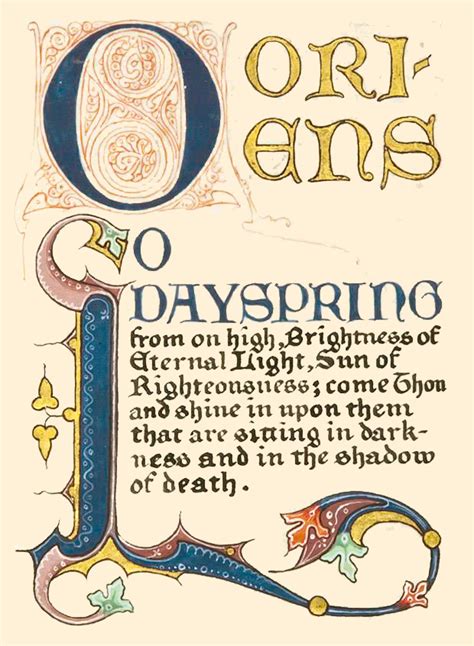 O ORI-
ENS
O
DAYSPRING
from on high, Brightness of
Eternal Light, Sun of
Righteousness; come Thou
and shine in upon them
that are sitting in dark-
ness and in the shadow
of death.